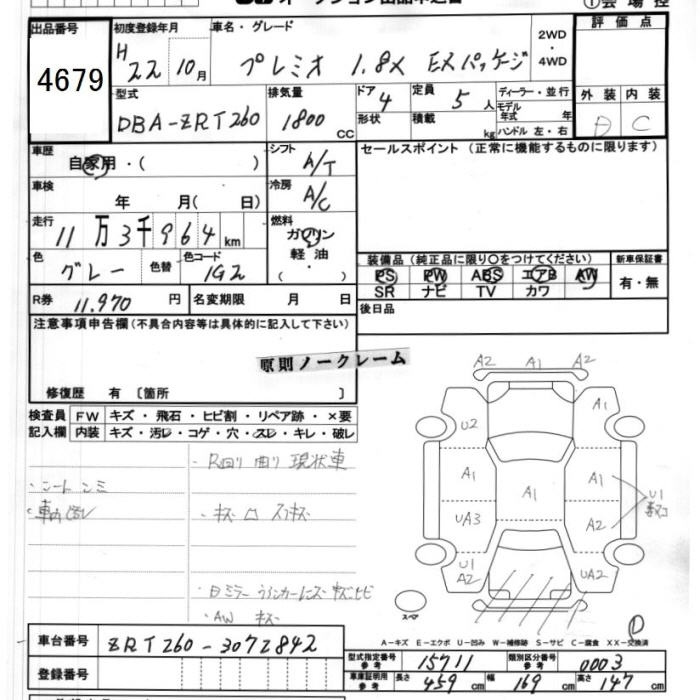 オークション出品車
①会場控
出品番号
4679
初度登録年月
H 22 10月
車名・グレード
プレミオ 1.8X EXパッケージ
2WD
・
4WD
評価点
外装 内装
D C
型式
DBA-ZRT260
排気量
1800 CC
ドア 4
形状
定員 5 人
積載 kg
ディーラー・並行
モデル年式 年
ハンドル 左・右
車歴
自家用・( )
シフト
A/T
セールスポイント (正常に機能するものに限ります)
車検
年 月( 日)
冷房
A/C
走行
11万3千964km
燃料
ガソリン
軽油
( ・ )
色
グレー
色替
色コード
1G2
装備品(純正品に限り○をつけてください)
PS PW ABS エアB AW
SR ナビ TV カワ
新車保証書
有・無
R券 11,970 円
名変期限 月 日
後日品
注意事項申告欄(不具合内容等は具体的に記入して下さい)
原則ノークレーム
修復歴 有 〔箇所 〕
検査員記入欄
FW キズ・飛石・ヒビ割・リペア跡・×要
内装 キズ・汚レ・コゲ・穴・スレ・キレ・破レ
・R回り 曲り 現状車
・シートシミ
・車内汚レ
・キズ
・AW キズ
A2 A1 A2
U2 A1
A1 A1 A1
UA3 A2
U1
U1 A2
UA2
スペア
D
A-キズ E-エクボ U-凹み W-補修跡 S-サビ C-腐食 XX-交換済
車台番号 ZRT260-3072842
登録番号
型式指定番号 参考 15711
類別区分番号 参考 0003
車庫証明用 参考 長さ 459 cm 幅 169 cm 高さ 147 cm